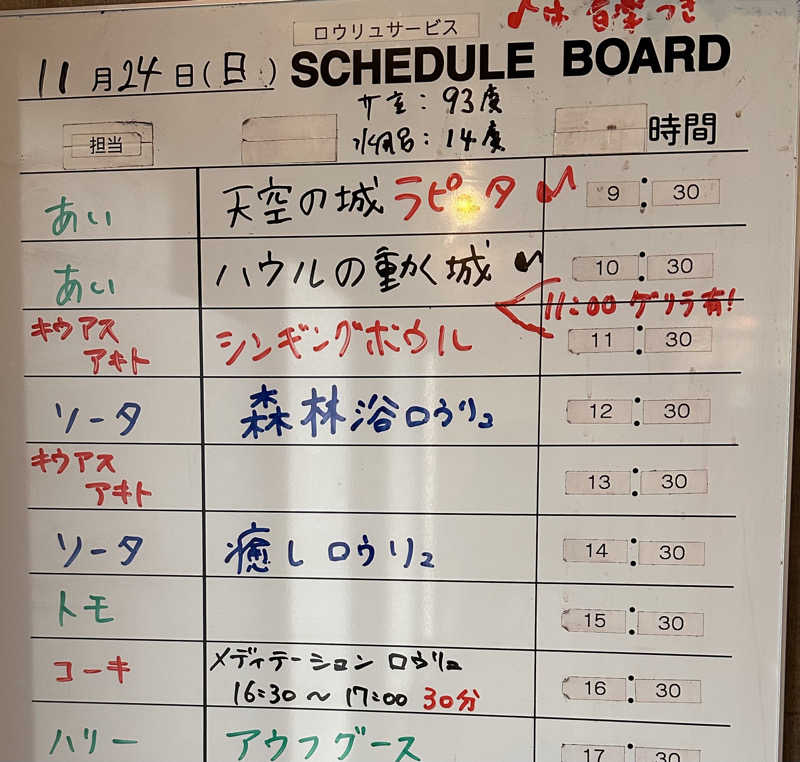 ♪は 音楽つき
ロウリュサービス
11月24日(日) SCHEDULE BOARD
サ室:93度
水風呂:14度
担当 時間
あい 天空の城ラピュタ ♪ 9:30
あい ハウルの動く城 ♪ 10:30
11:00 ゲリラ有!
キウアス
アキト シンギングボウル 11:30
ソータ 森林浴ロウリュ 12:30
キウアス
アキト 13:30
ソータ 癒しロウリュ 14:30
トモ 15:30
コーキ メディテーション ロウリュ 16:30
16:30〜17:00 30分
ハリー アウフグース 17:30